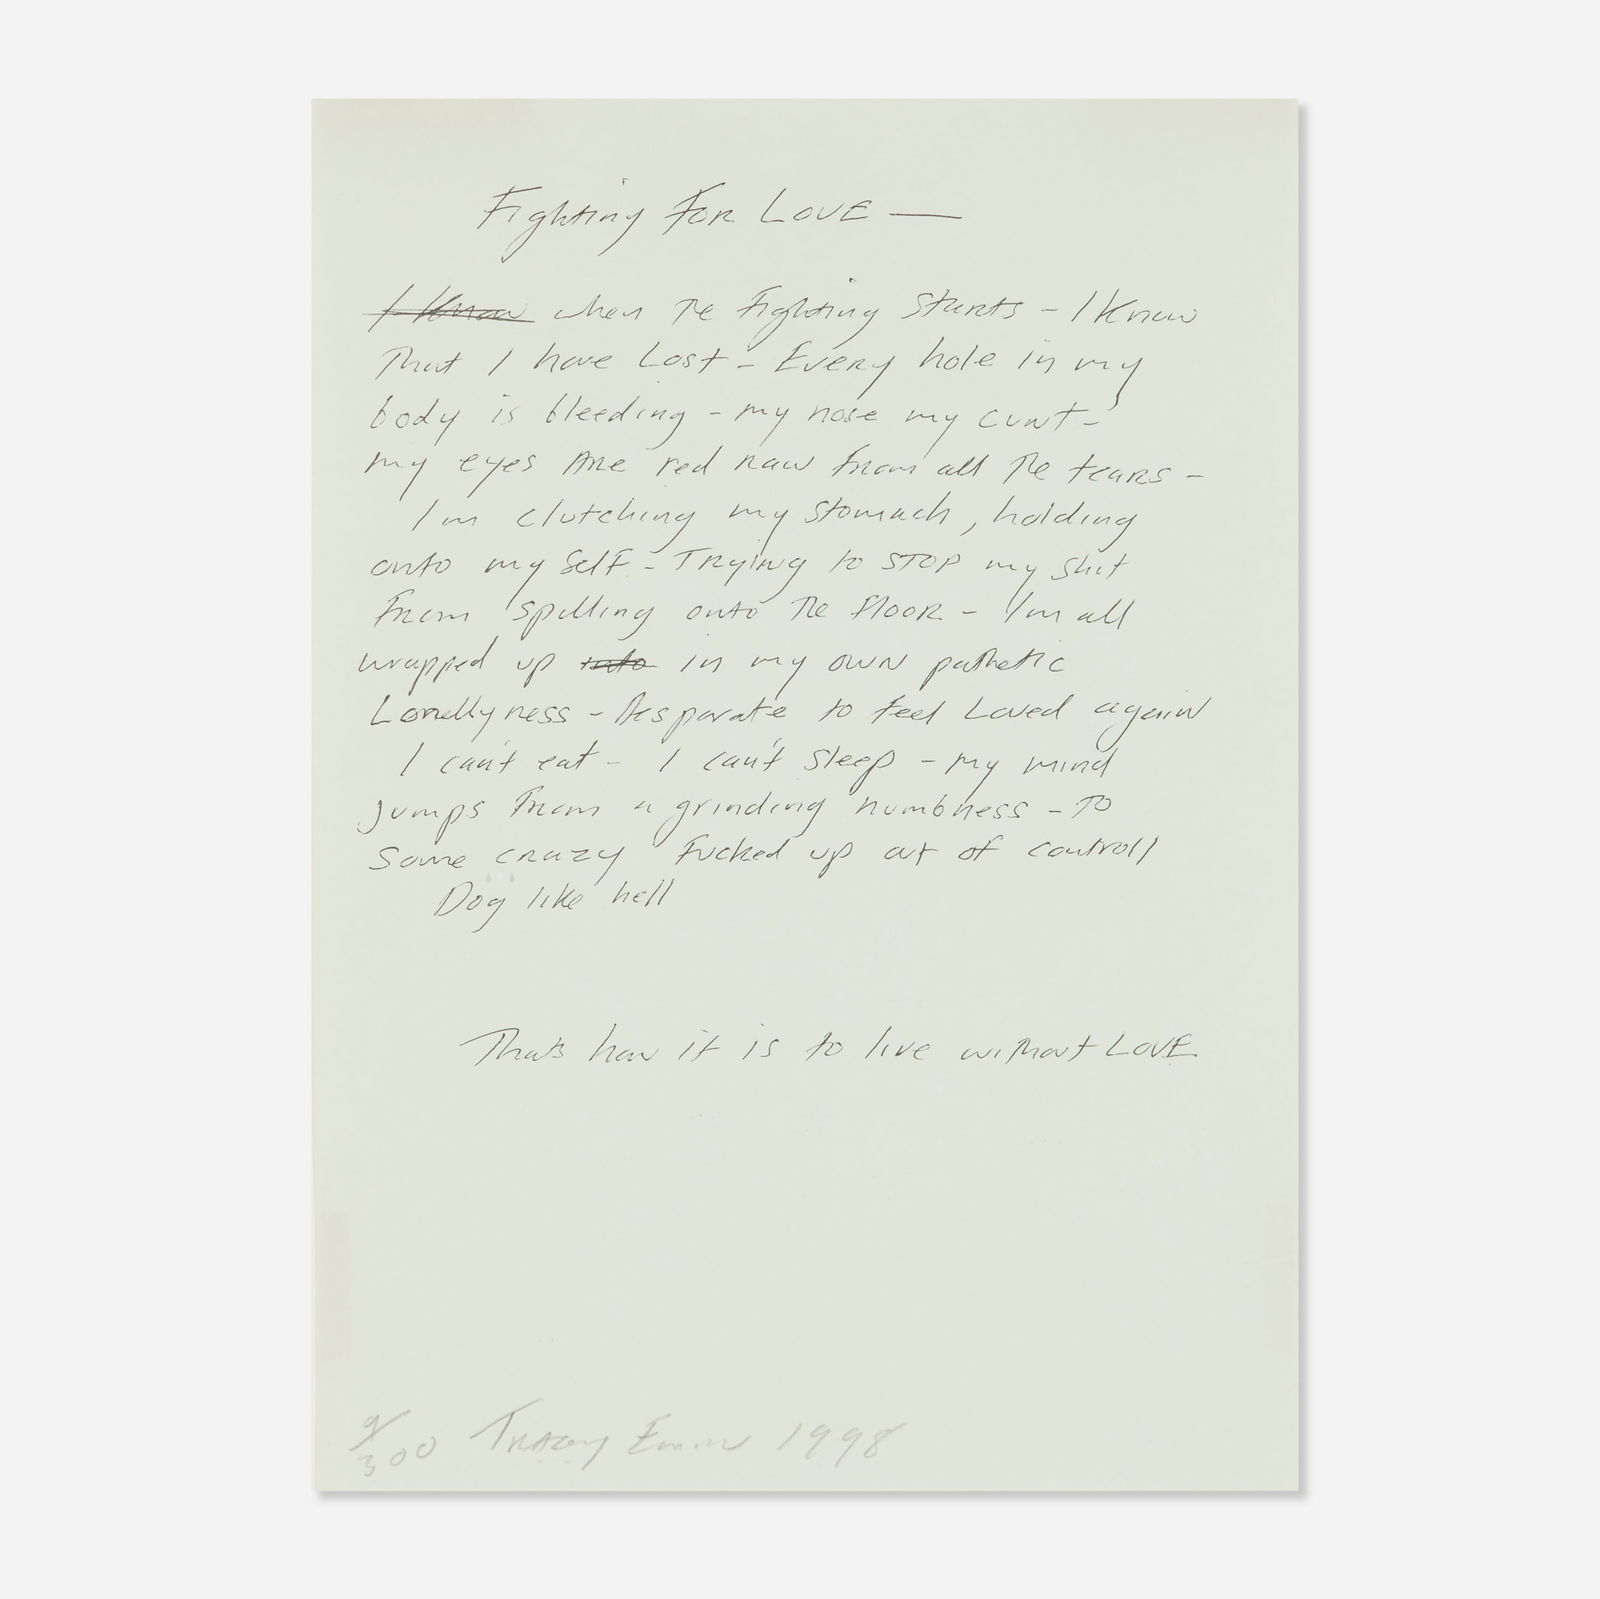 Fighting FOR LOVE —
I Know when The Fighting Starts - I Know
That I have Lost - Every hole in my
body is bleeding - my nose my cunt -
my eyes Are red raw from all The tears -
I'm clutching my stomach, holding
onto my self - Trying to STOP my shit
From spilling onto The floor - I'm all
wrapped up into in my own pathetic
Lonellyness - Desparate to feel Loved again
I can't eat - I can't sleep - my mind
Jumps from a grinding numbness - To
Some crazy Fucked up out of controll
Dog like hell
That's how it is to live without LOVE
9/300 Tracey Emin 1998